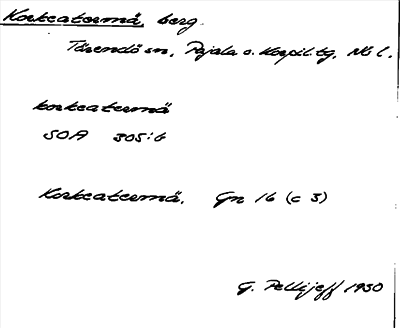 Korkeatermä, berg.
Tärendö sn, Pajala o. Korpil. tg, Nb l.
korkeatermä
SOA 305:6
Korkeatermä. Gn 16 (c 3)
G. Pellijeff 1950